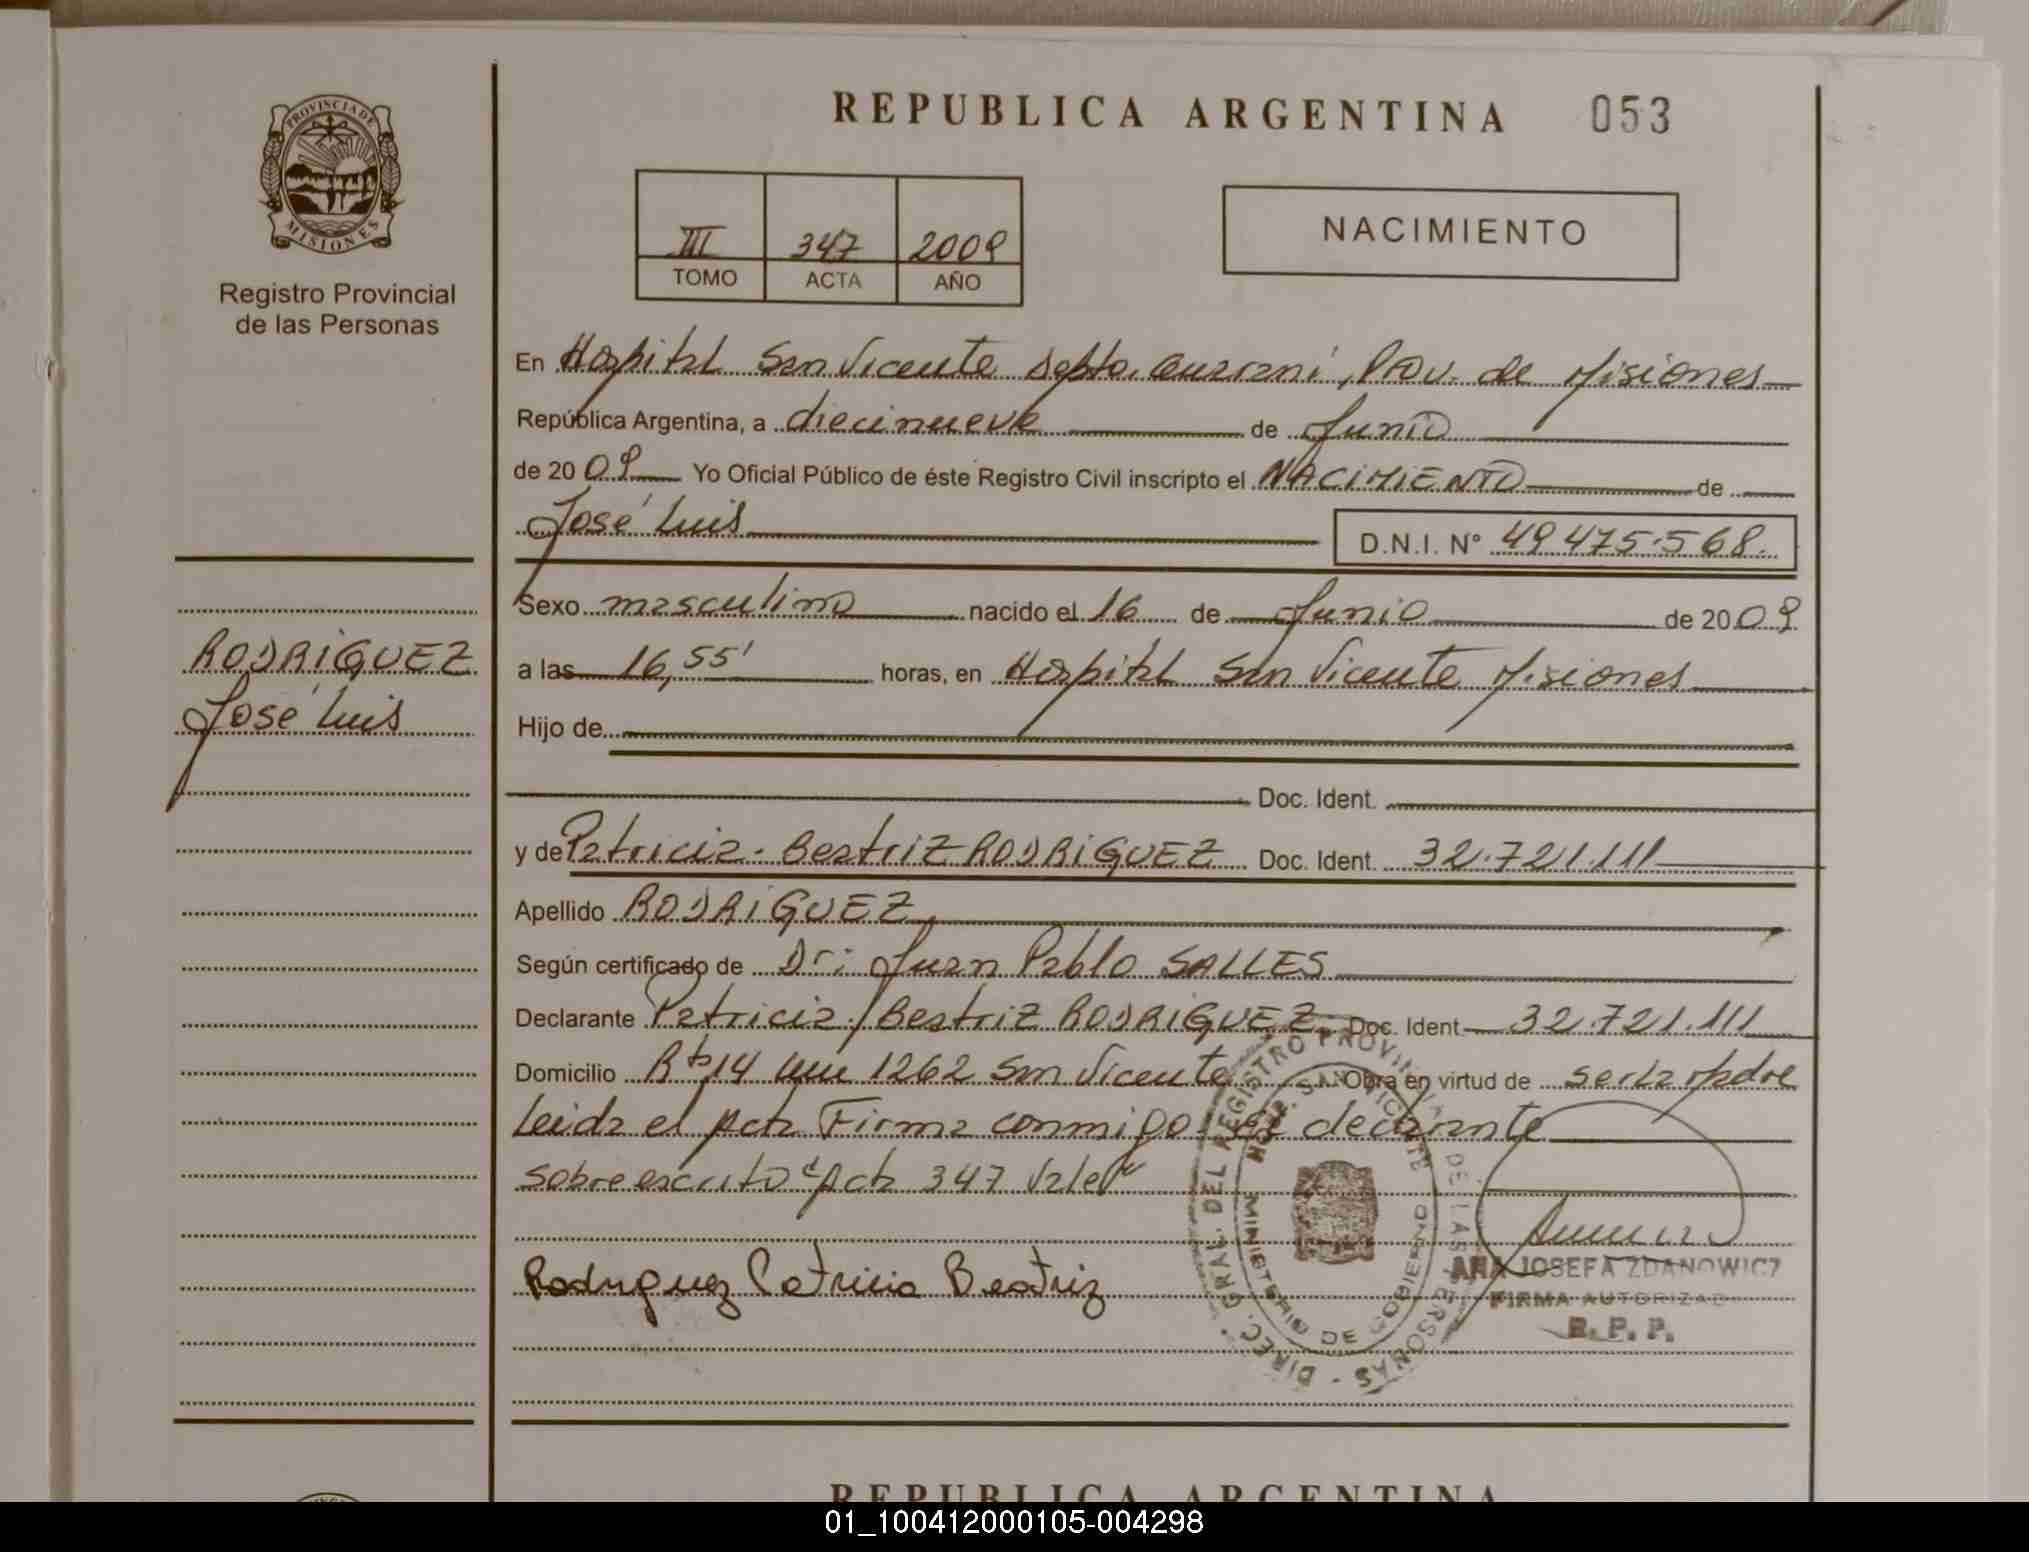 REPUBLICA ARGENTINA 053
PROVINCIA DE
MISIONES
Registro Provincial
de las Personas
III 347 2009
TOMO ACTA AÑO
NACIMIENTO
En Hospital San Vicente Depto. Guaraní, Prov. de Misiones
República Argentina, a diecinueve de Junio
de 2009 Yo Oficial Público de éste Registro Civil inscripto el NACIMIENTO de
José Luis D.N.I. N° 49.475.568.
Sexo masculino nacido el 16 de Junio de 2009
RODRIGUEZ
José Luis
a las 16,55' horas, en Hospital San Vicente Misiones
Hijo de
Doc. Ident.
y de Patricia Beatriz RODRIGUEZ Doc. Ident. 32.721.111
Apellido RODRIGUEZ
Según certificado de Dr: Juan Pablo SALLES
Declarante Patricia Beatriz RODRIGUEZ Doc. Ident 32.721.111
Domicilio Rta 14 1262 San Vicente Obra en virtud de ser la Madre
Leida el Acta Firma conmigo declarante
Sobreescrito "Acta 347 Vale"
Rodriguez Patricia Beatriz
DIREC. GRAL. DEL REGISTRO PROVINCIAL DE LAS PERSONAS
HOSP. SAN VICENTE
MINISTERIO DE GOBIERNO
ANA JOSEFA ZDANOWICZ
FIRMA AUTORIZADA
R. P. P.
REPUBLICA ARGENTINA
01_100412000105-004298